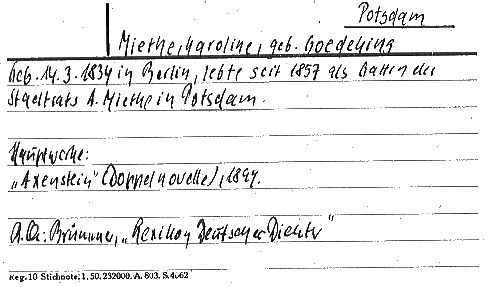 Potsdam
Miethe, Karoline, geb. Goedeking
Geb. 14.3.1834 in Berlin, lebte seit 1857 als Gattin des
Stadtrats A. Miethe in Potsdam.
Hauptwerke:
„Axenstein" (Doppelnovelle), 1897.
A.Qu.: Brümmer, „Lexikon Deutscher Dichter"
Reg. 10 Stichnote. 1. 50. 232000. A. 803. S. 4062